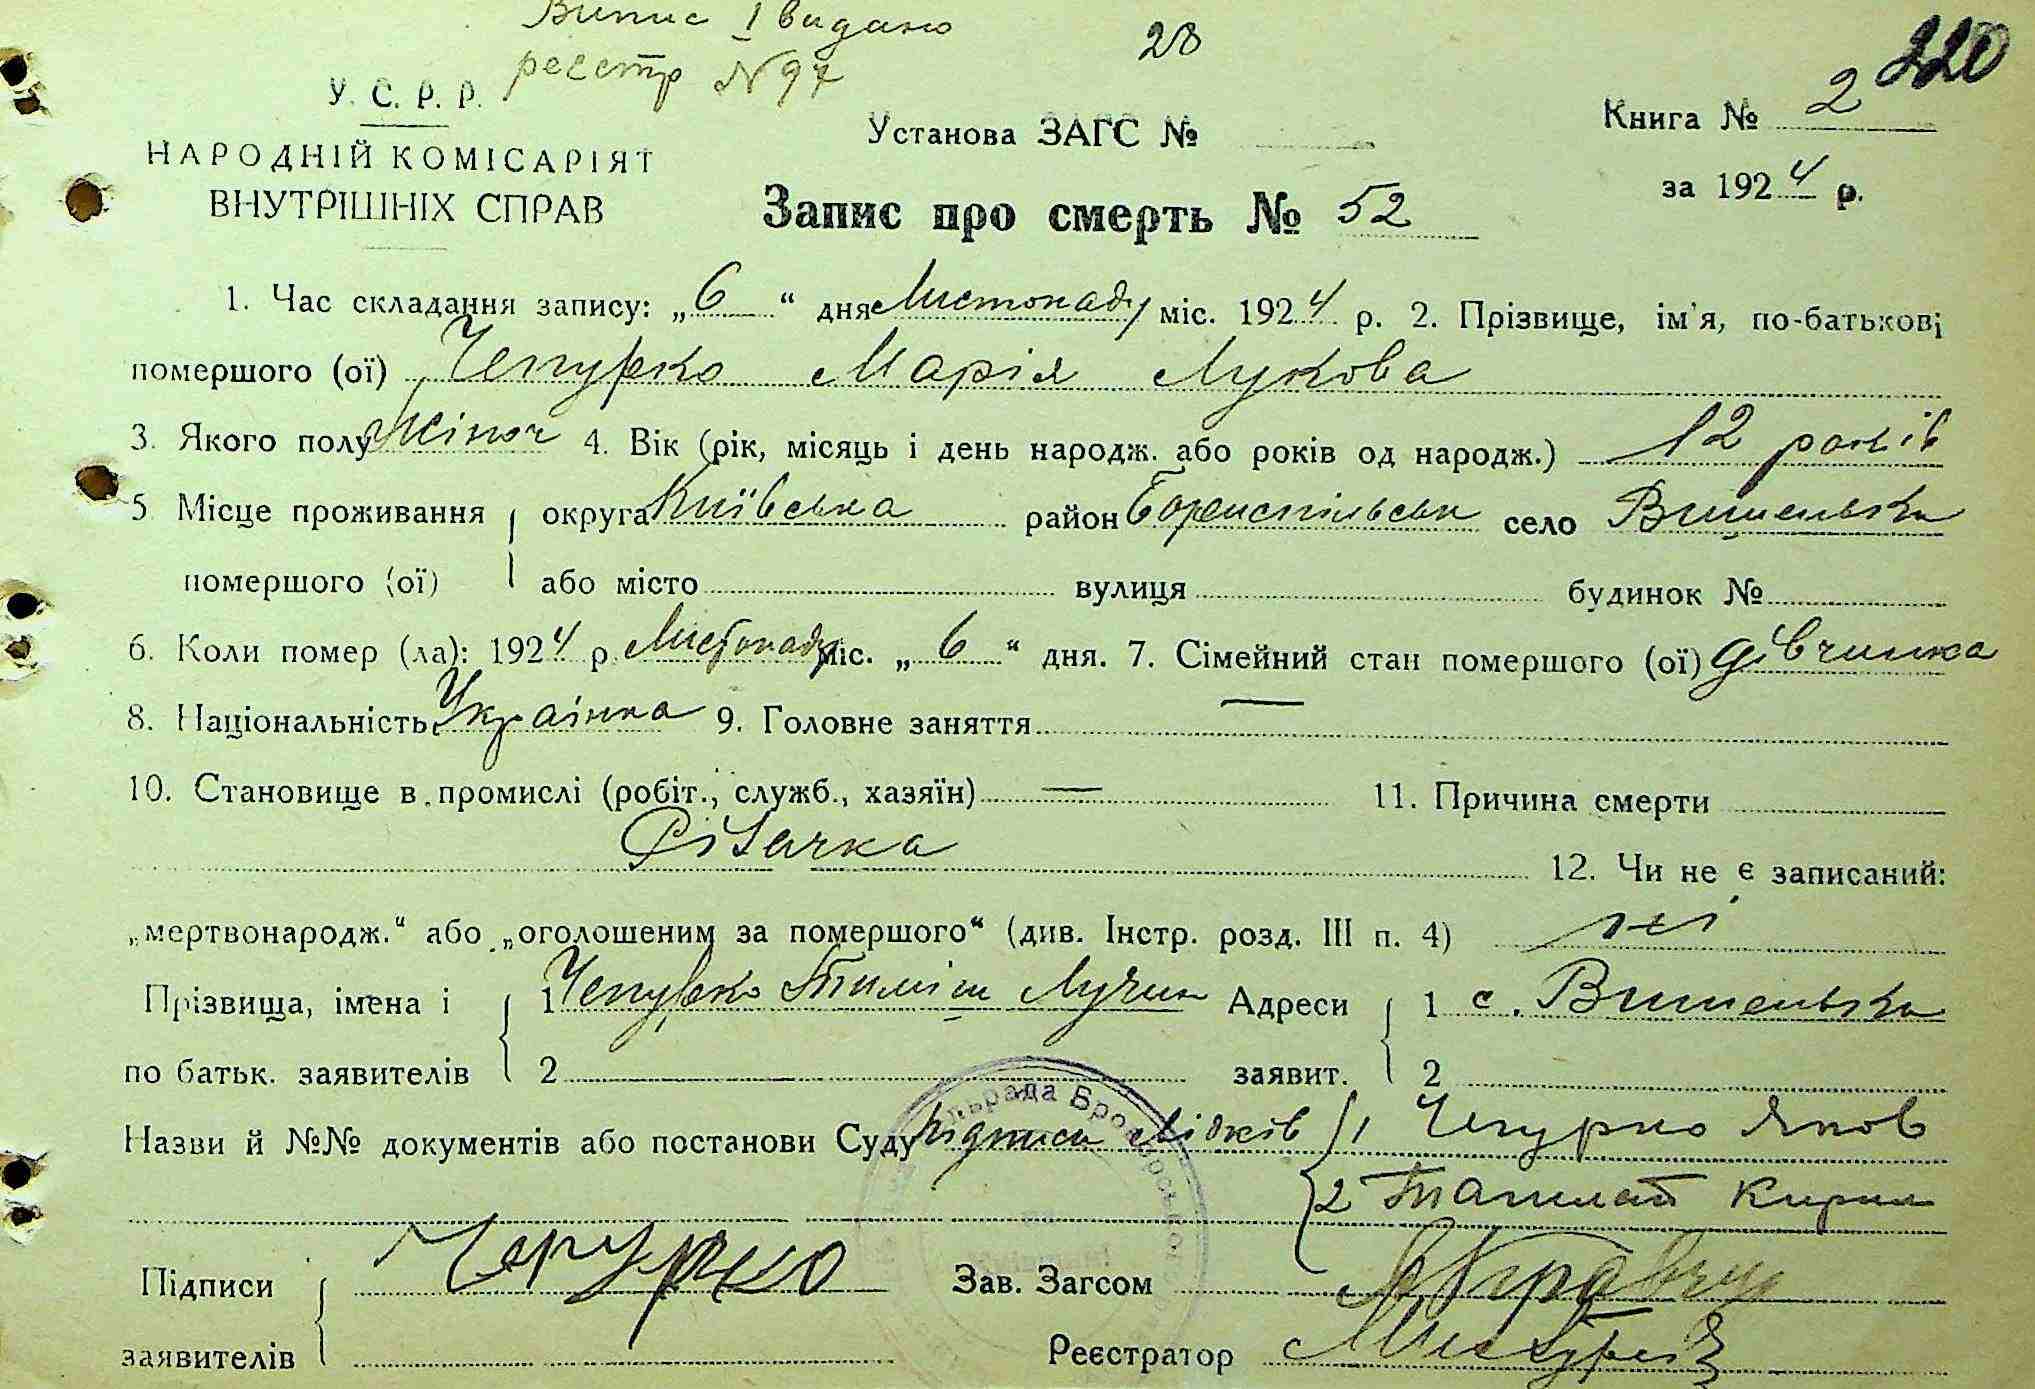 Випис 1 видано
реєстр N 97
28
220
У. С. Р. Р.
НАРОДНІЙ КОМІСАРІЯТ
ВНУТРІШНІХ СПРАВ
Установа ЗАГС №
Книга № 2
за 1924 р.
Запис про смерть № 52
1. Час складання запису: „6“ дня Листопаду міс. 1924 р. 2. Прізвище, ім'я, по-батькові
помершого (ої) Чепурко Марія Лукова
3. Якого полу Жіноч 4. Вік (рік, місяць і день народж. або років од народж.) 12 років
5 Місце проживання округа Київська район Бориспільськ село Вишеньки
помершого (ої) або місто вулиця будинок №
6. Коли помер (ла): 1924 р. Листопаду міс. „6“ дня. 7. Сімейний стан помершого (ої) дівчинка
8. Національність Українка 9. Головне заняття —
10. Становище в промислі (робіт., служб., хазяїн) — 11. Причина смерти
Різачка
12. Чи не є записаний:
„мертвонародж.“ або „оголошеним за помершого“ (див. Інстр. розд. III п. 4) ні
Прізвища, імена і 1 Чепурко Тиміш Лучин Адреси 1 с. Вишеньки
по батьк. заявителів 2 заявит. 2
Назви й №№ документів або постанови Суду Підписи свідків 1 Чепурко Яков
2 Кирил
Підписи Чепурко Зав. Загсом
заявителів Реєстратор